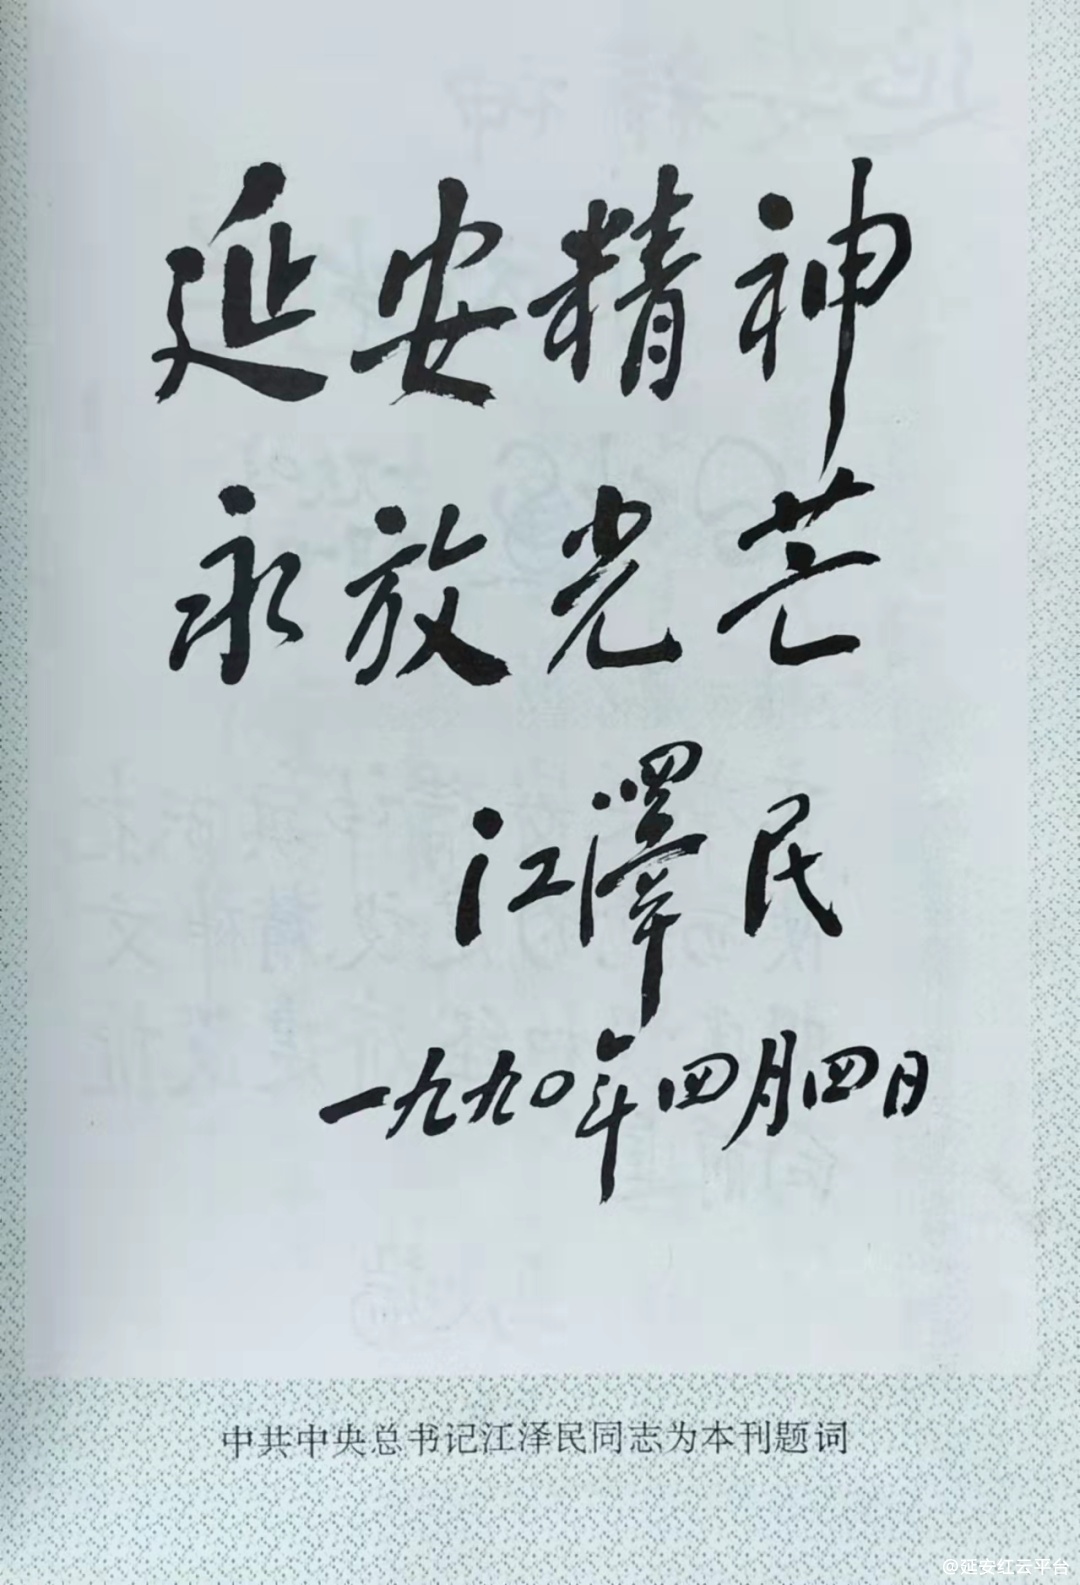 延安精神
永放光芒
江澤民
一九九〇年四月四日
中共中央总书记江泽民同志为本刊题词
@延安红云平台